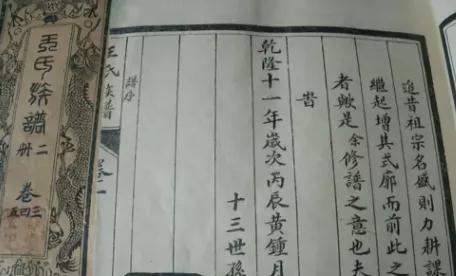 追昔祖宗名盛則力耕課
繼起增其式廓而前此之
者歟是余修譜之意也夫
旹
乾隆十一年歲次丙辰黃鍾月
十三世孫
王氏族譜
譜序
卷一
王氏族譜
二册
卷三四五